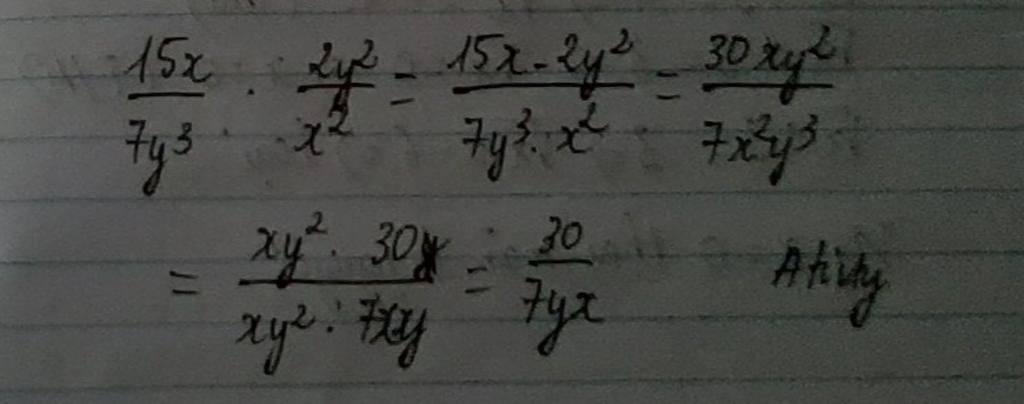 15x/7y³ · 2y²/x² = 15x · 2y²/7y³ · x² = 30xy²/7x²y³
= xy² · 30/xy² · 7xy = 30/7yx